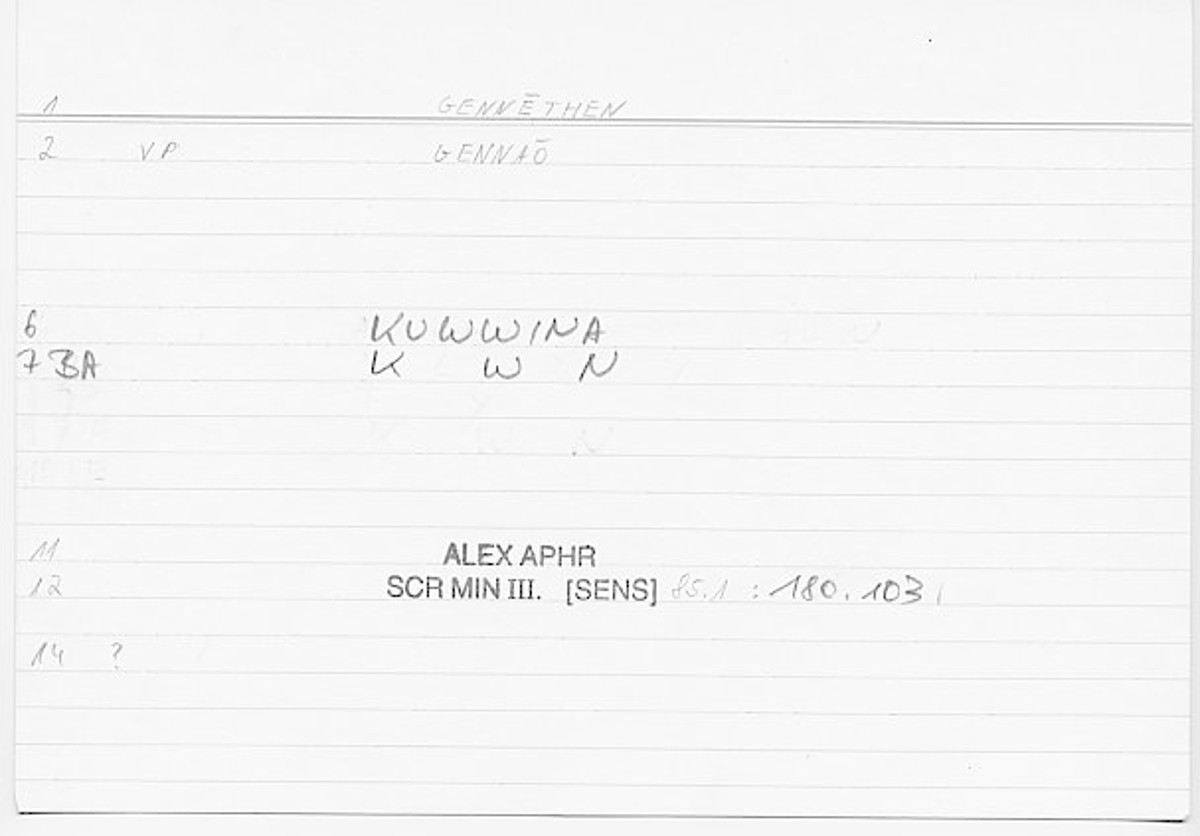 1 GENNĒTHEN
2 VP GENNAŌ
6 KUWWINA
7 BA K W N
11 ALEX APHR
12 SCR MIN III. [SENS] 85.1 : 180.103
14 ?